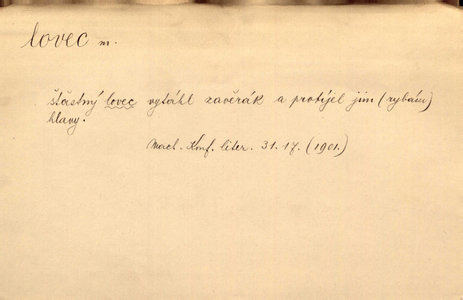 lovec m.
šťastný lovec vytáhl zavěrák a protýjel jim (rybám)
hlavy.
Mach. Knf. liter. 31. 17. (1901.)